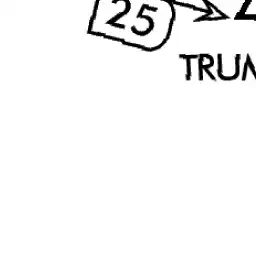 25
TRUM